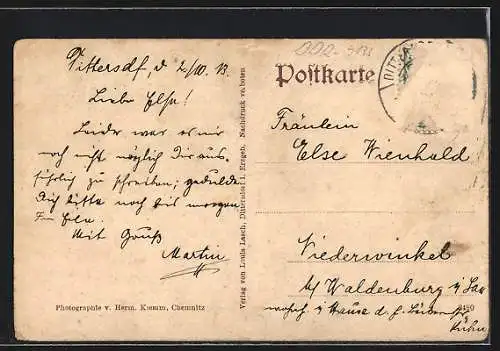 Dittersdf, d 2/10. 13.
Liebe Else!
Leider war es mir
noch nicht möglich Dir aus-
führlich zu schreiben; gedulde
Dich bitte noch bis morgen
Mit Gruß
Martin
Photographie v. Herm. Kiemm, Chemnitz
Verlag von Louis Lasch, Dittersdorf i. Erzgeb. Nachdruck verboten
Postkarte
Fräulein
Else Wienhold
Niederwinkel
b/ Waldenburg i/ Sa
wohnh. i Hause d. H.